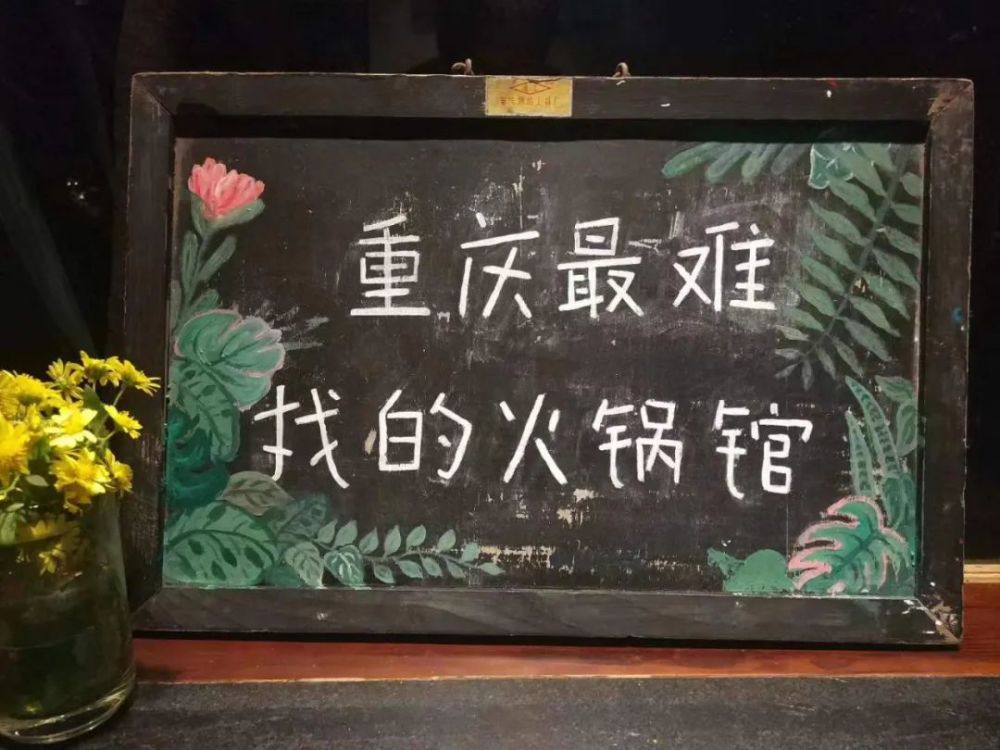 重庆最难
找的火锅馆